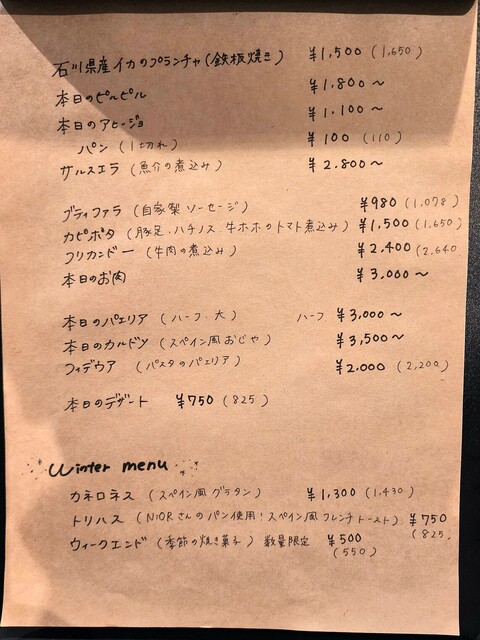 石川県産イカのプランチャ(鉄板焼き) ¥1,500 (1,650)
本日のピルピル ¥1.800~
本日のアヒージョ ¥1,100~
パン (1切れ) ¥100 (110)
サルスエラ (魚介の煮込み) ¥2.800~
ブティファラ (自家製ソーセージ) ¥980 (1,078)
カピポタ (豚足、ハチノス、牛ホホのトマト煮込み) ¥1,500 (1,650)
フリカンドー (牛肉の煮込み) ¥2,400 (2,640
本日のお肉 ¥3,000~
本日のパエリア (ハーフ・大) ハーフ ¥3,000~
本日のカルドソ (スペイン風おじや) ¥3,500~
フィデウア (パスタのパエリア) ¥2.000 (2,200)
本日のデザート ¥750 (825)
Winter menu
カネロネス (スペイン風グラタン) ¥1,300 (1,430)
トリハス (NiORさんのパン使用!スペイン風フレンチトースト) ¥750
(825.
ウィークエンド (季節の焼き菓子) 数量限定 ¥500
(550)